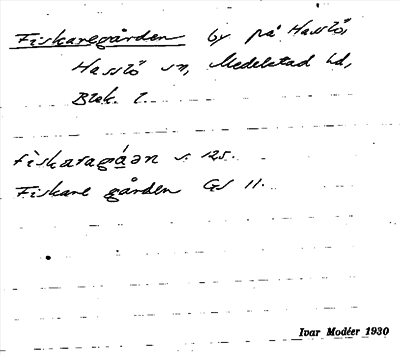 Fiskaregården by på Hasslö,
Hasslö sn, Medelstad hd,
Blek. l.
fiskaragá̱ən s. 125.
Fiskare gården GS 11.
Ivar Modéer 1930